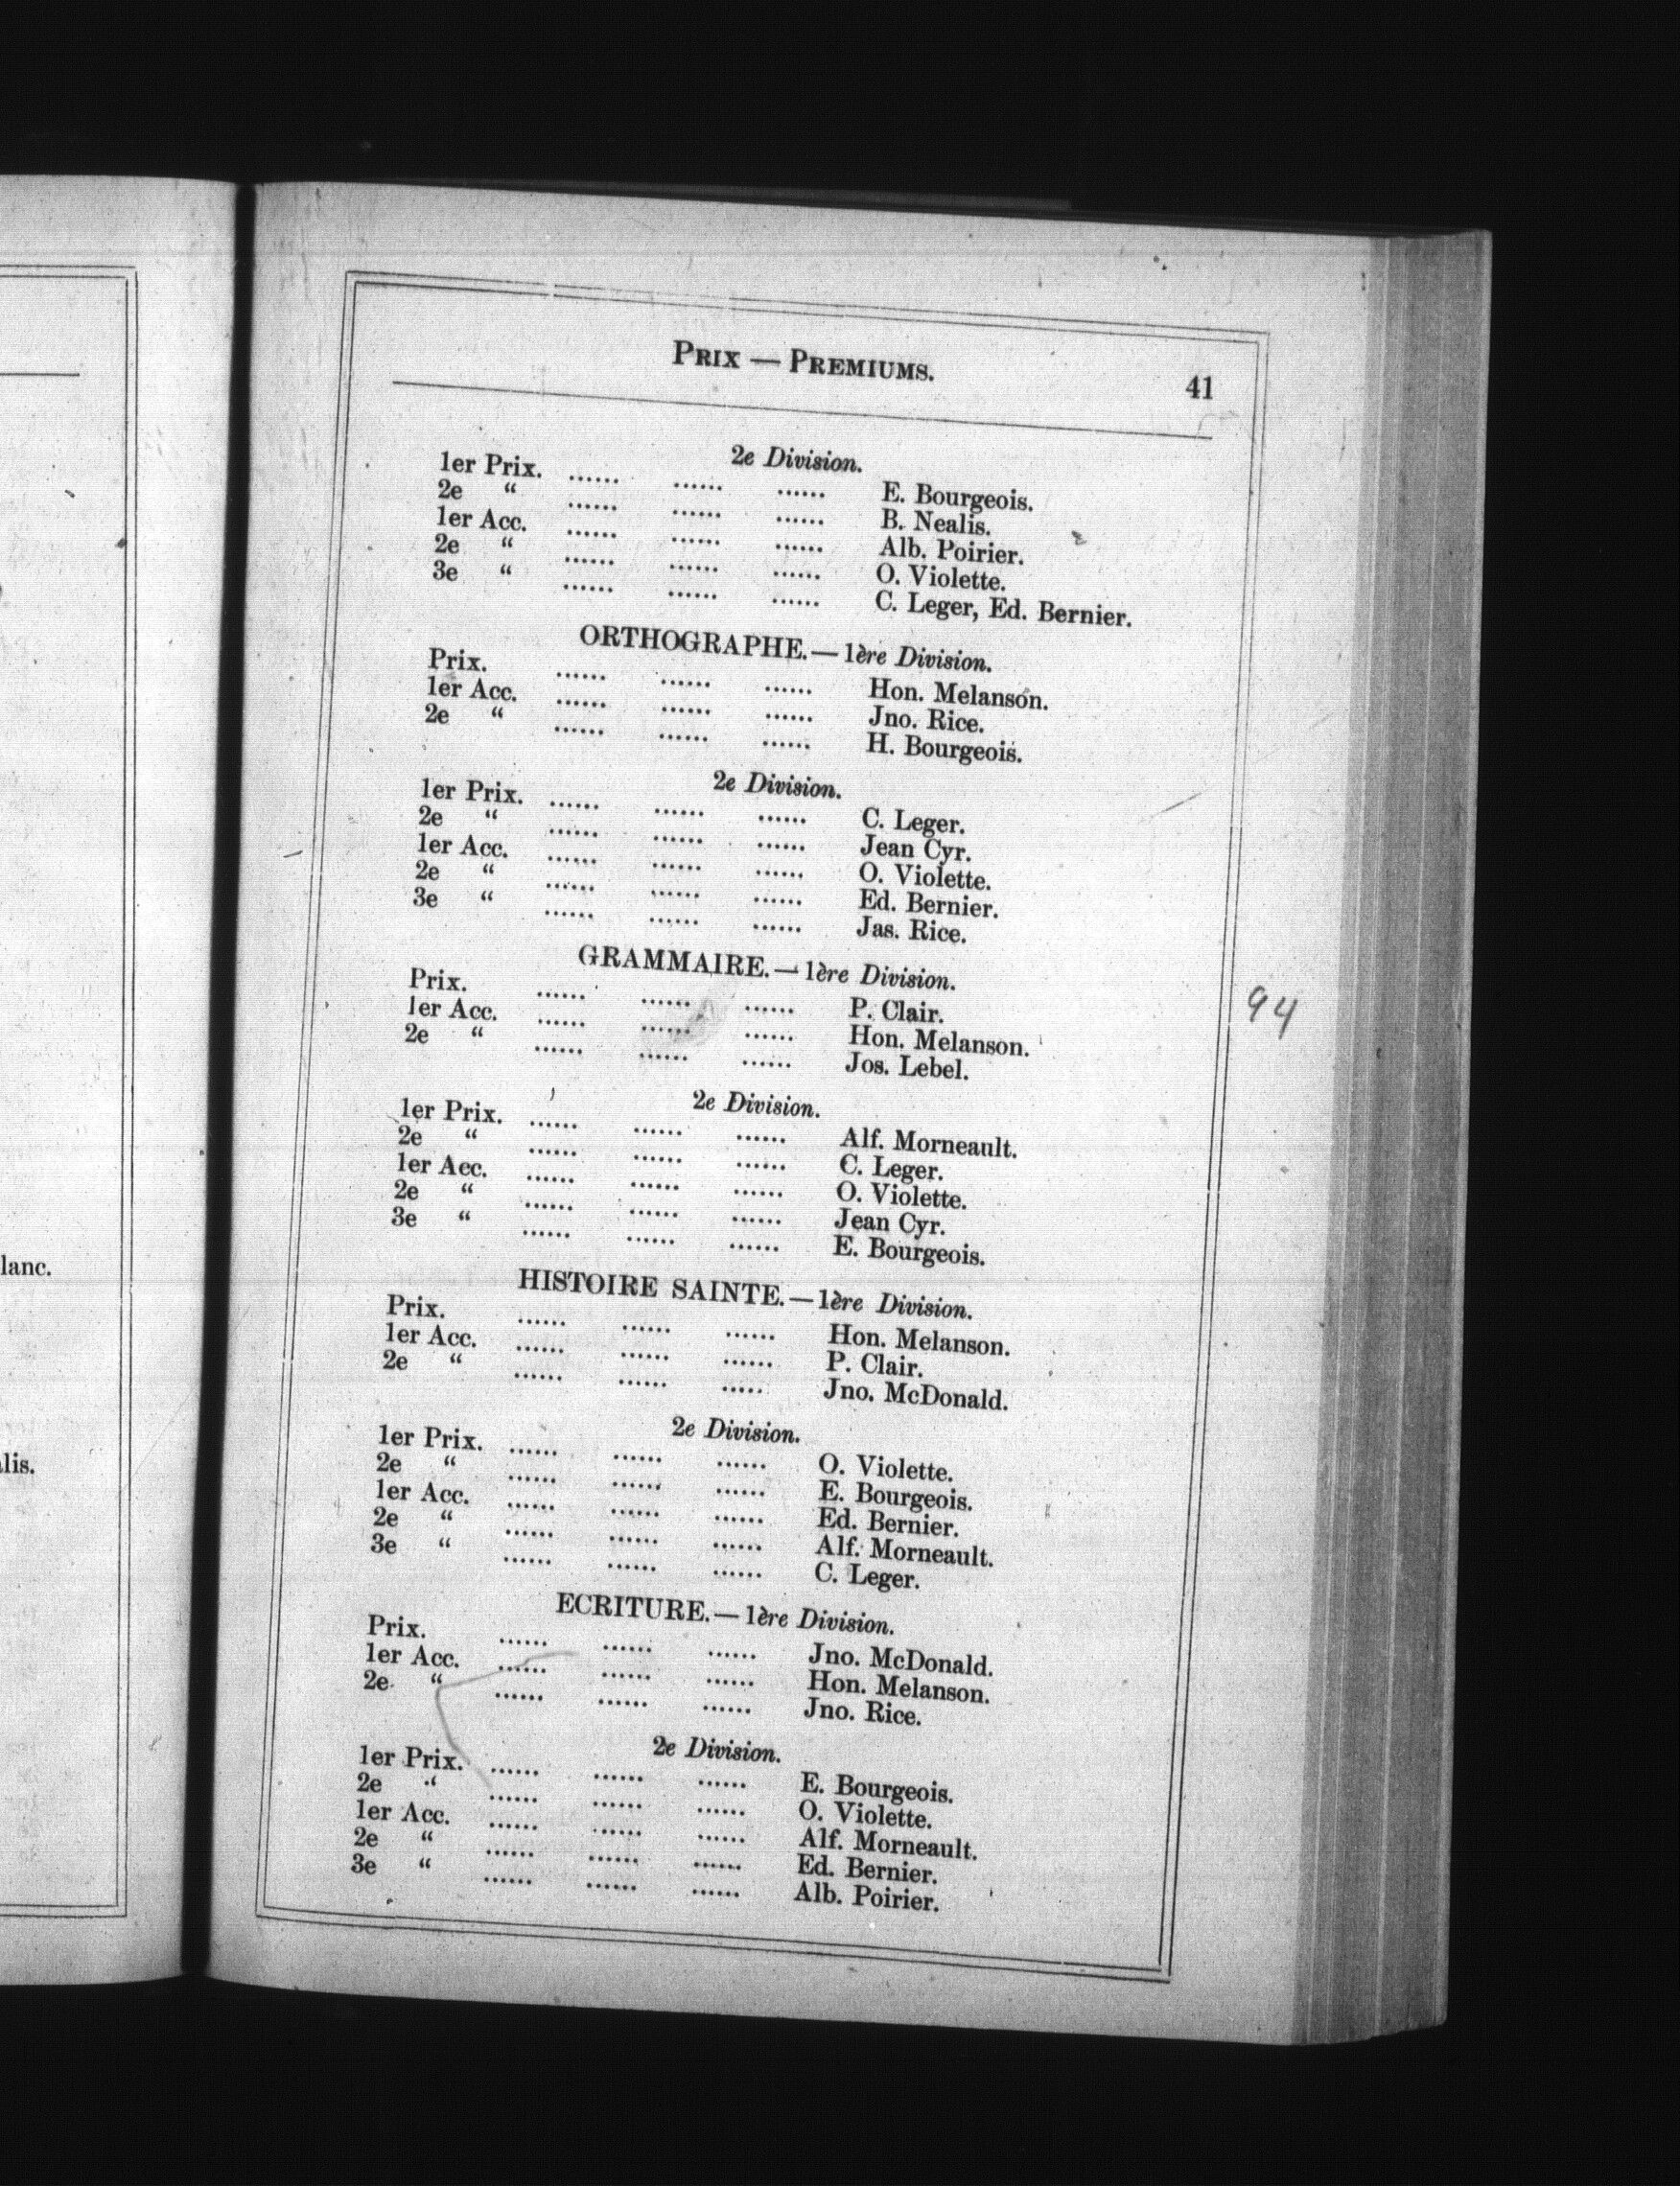 PRIX — PREMIUMS.
41
2e Division.
1er Prix. ...... ...... ...... E. Bourgeois.
2e “ ...... ...... ...... B. Nealis.
1er Acc. ...... ...... ...... Alb. Poirier.
2e “ ...... ...... ...... O. Violette.
3e “ ...... ...... ...... C. Leger, Ed. Bernier.
ORTHOGRAPHE.—1ère Division.
Prix. ...... ...... ...... Hon. Melanson.
1er Acc. ...... ...... ...... Jno. Rice.
2e “ ...... ...... ...... H. Bourgeois.
2e Division.
1er Prix. ...... ...... ...... C. Leger.
2e “ ...... ...... ...... Jean Cyr.
1er Acc. ...... ...... ...... O. Violette.
2e “ ...... ...... ...... Ed. Bernier.
3e “ ...... ...... ...... Jas. Rice.
GRAMMAIRE.—1ère Division.
Prix. ...... ...... ...... P. Clair.
1er Acc. ...... ...... ...... Hon. Melanson.
2e “ ...... ...... ...... Jos. Lebel.
94
2e Division.
1er Prix. ...... ...... ...... Alf. Morneault.
2e “ ...... ...... ...... C. Leger.
1er Acc. ...... ...... ...... O. Violette.
2e “ ...... ...... ...... Jean Cyr.
3e “ ...... ...... ...... E. Bourgeois.
HISTOIRE SAINTE.—1ère Division.
Prix. ...... ...... ...... Hon. Melanson.
1er Acc. ...... ...... ...... P. Clair.
2e “ ...... ...... ..... Jno. McDonald.
2e Division.
1er Prix. ...... ...... ...... O. Violette.
2e “ ...... ...... ...... E. Bourgeois.
1er Acc. ...... ...... ...... Ed. Bernier.
2e “ ...... ...... ...... Alf. Morneault.
3e “ ...... ...... ...... C. Leger.
ECRITURE.—1ère Division.
Prix. ...... ...... ...... Jno. McDonald.
1er Acc. ...... ...... ...... Hon. Melanson.
2e “ ...... ...... ...... Jno. Rice.
2e Division.
1er Prix. ...... ...... ...... E. Bourgeois.
2e “ ...... ...... ...... O. Violette.
1er Acc. ...... ...... ...... Alf. Morneault.
2e “ ...... ...... ...... Ed. Bernier.
3e “ ...... ...... ...... Alb. Poirier.
lanc.
lis.